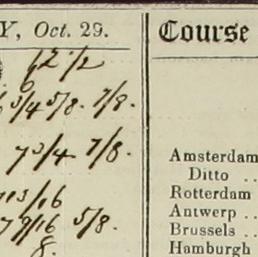 Y, Oct. 29.
62 1/2
6 3/4 5/8. 7/8.
7 3/4 7/8.
7 13/16
7 9/16 5/8.
8.
Course
Amsterdam
Ditto ..
Rotterdam
Antwerp ..
Brussels ..
Hamburgh